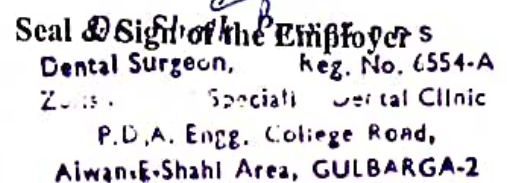 Seal & Sign of the Employer s
Dental Surgeon, Reg. No. 6554-A
Speciali Dental Clinic
P.D.A. Engg. College Road,
Aiwan-E-Shahi Area, GULBARGA-2